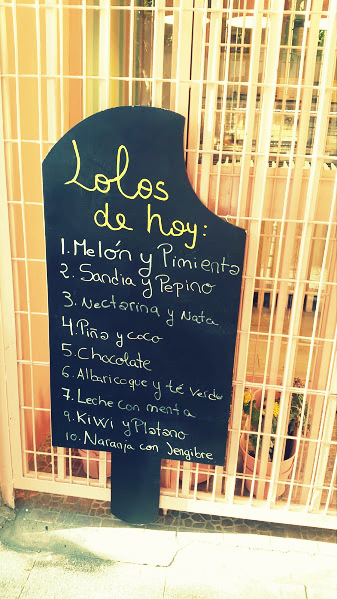 Lolos
de hoy:
1. Melón y Pimienta
2. Sandia y Pepino
3. Nectarina y Nata
4. Piña y coco
5. Chocolate
6. Albaricoque y té verde
7. Leche con menta
9. Kiwi y Platano
10. Naranja con Jengibre